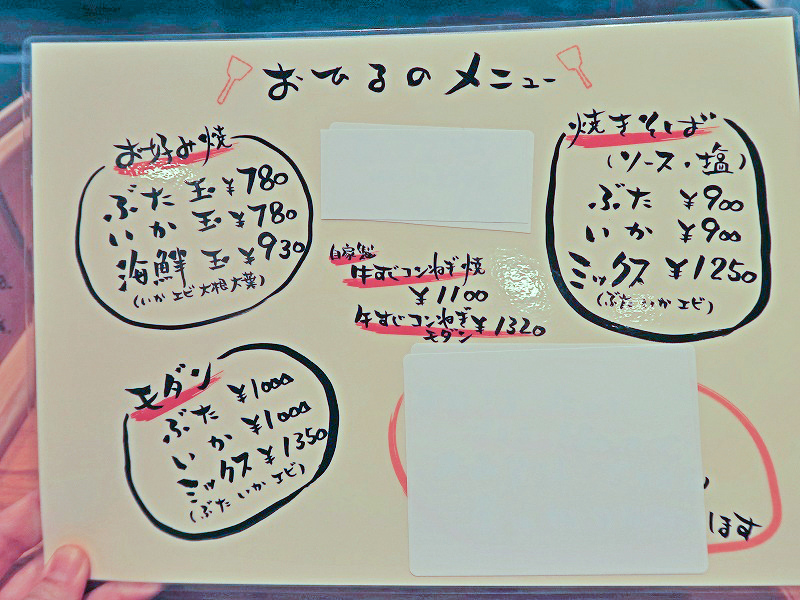 おひるのメニュー
お好み焼
ぶた玉 ¥780
いか玉 ¥780
海鮮玉 ¥930
(いか エビ 大根 大葉)
自家製
牛すじコンねぎ焼
¥1100
牛すじコンねぎ
モダン ¥1320
焼きそば
(ソース・塩)
ぶた ¥900
いか ¥900
ミックス ¥1250
(ぶた いか エビ)
モダン
ぶた ¥1000
いか ¥1000
ミックス ¥1350
(ぶた いか エビ)
ます